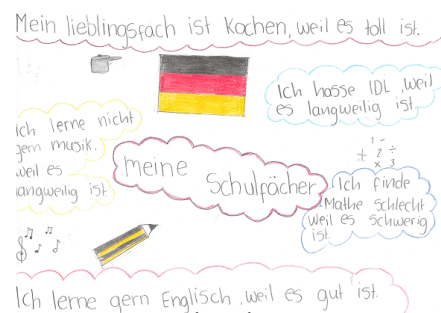 Mein lieblingsfach ist Kochen, weil es toll ist.
Ich hasse IDL, weil
es langweilig ist
Ich lerne nicht
gern musik.
weil es
langweilig ist
meine
Schulfächer
1 -
± 2 ÷
x 3
Ich finde
Mathe schlecht
weil es schwerig
ist.
Ich lerne gern Englisch, weil es gut ist.